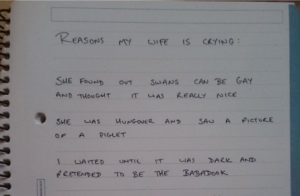 REASONS MY WIFE IS CRYING:
SHE FOUND OUT SWANS CAN BE GAY
AND THOUGHT IT WAS REALLY NICE
SHE WAS HUNGOVER AND SAW A PICTURE
OF A PIGLET
I WAITED UNTIL IT WAS DARK AND
PRETENDED TO BE THE BABADOOK